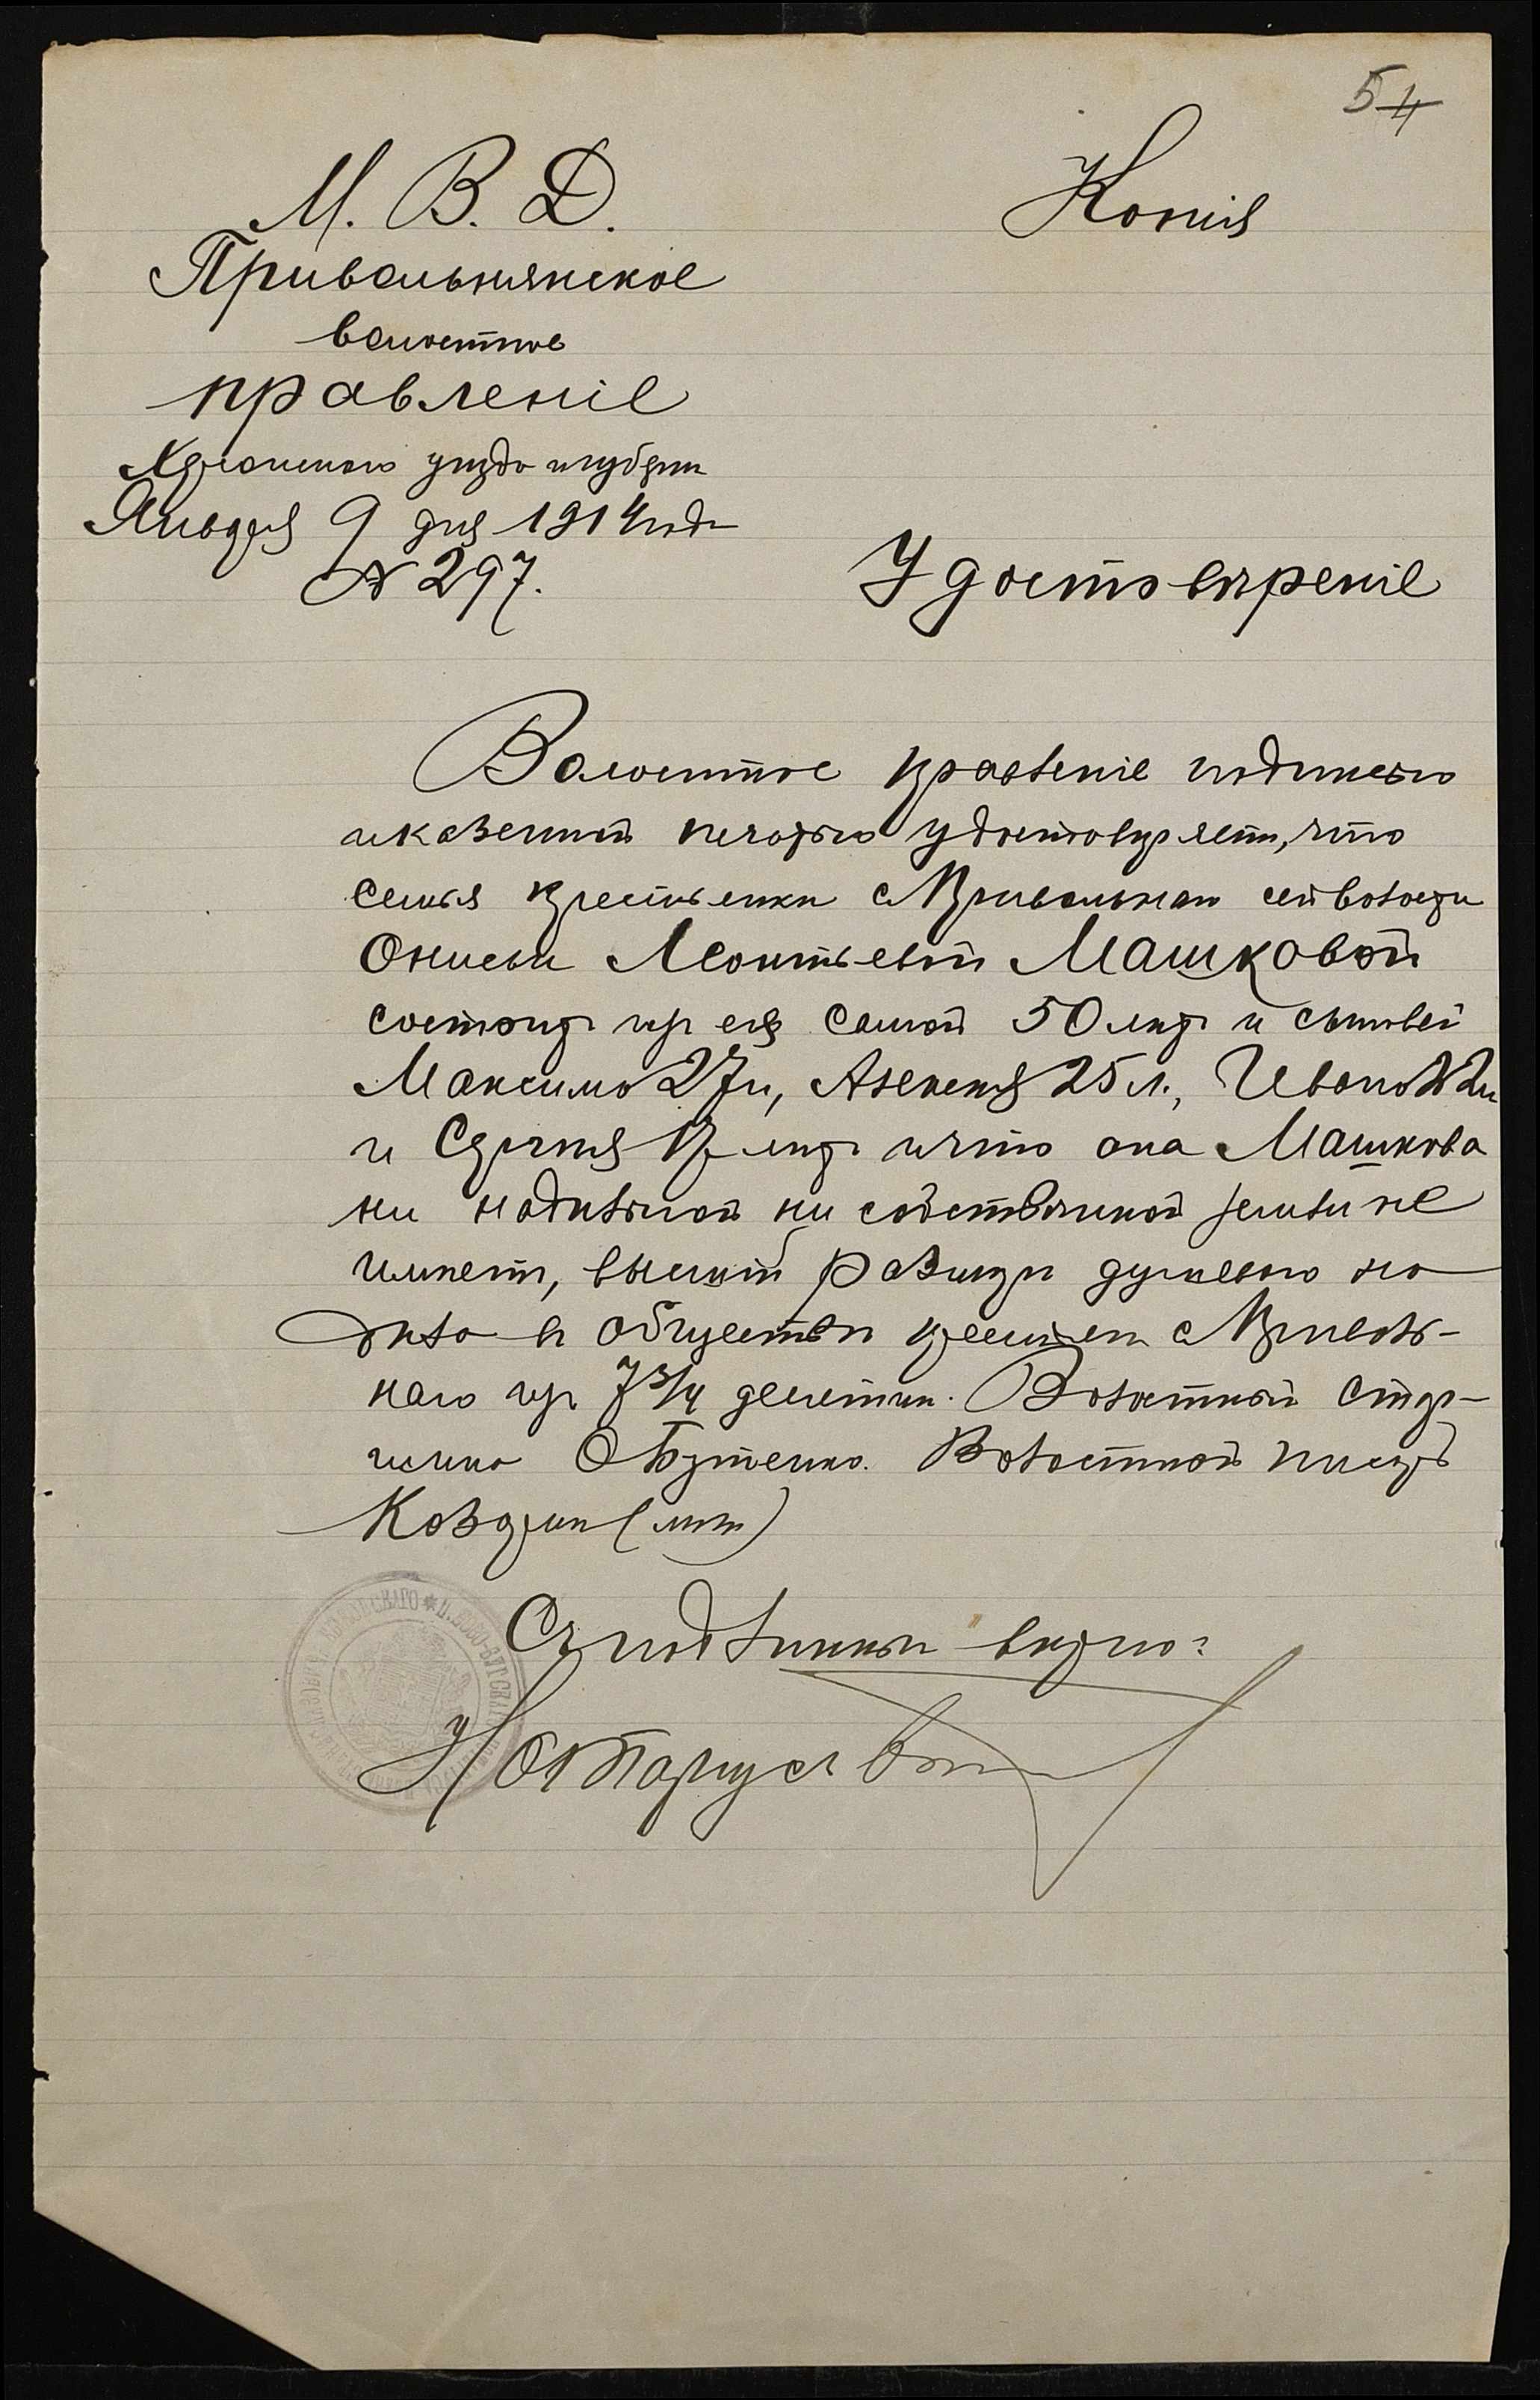 54
М. В. Д.
Копія
Привольнянское
волостное
правленіе
Херсонскаго уѣзда и губерніи
Января 9 дня 1914 года
№ 297.
Удостовѣреніе
Волостное правленіе подписью
и казенной печатью удостовѣряетъ, что
семья крестьянки с Привольнаго сей волости
Онисьи Леонтьевой Машковой
состоитъ изъ ея самой 50 лѣтъ и сыновей
Максима 27 л, Алексея 25 л., Ивана 22 л
и Сергея лѣтъ и что она Машкова
ни надѣльной ни собственной земли не
имѣетъ, высшій размѣръ душеваго на
дѣла въ обществѣ крестьянъ с Приволь-
наго изъ 7 3/4 десятин. Волостной стар-
шина О Бутенко. Волостной писарь
(м п)
Съ подлиннымъ вѣрно:
Нотаріусъ